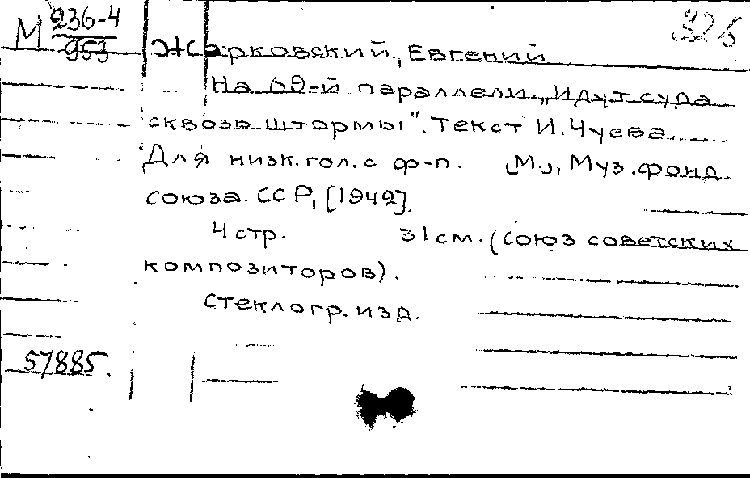 М 236-4
953
326
Жарковский, Евгений
На 69-й параллели. „Идут суда
сквозь штормы". Текст И. Чуева.
Для низк. гол. с ф-п. М., Муз. фонд
союза ССР, [1942].
4 стр. 31 см. (Союз советских
композиторов).
Стеклогр. изд.
57885.